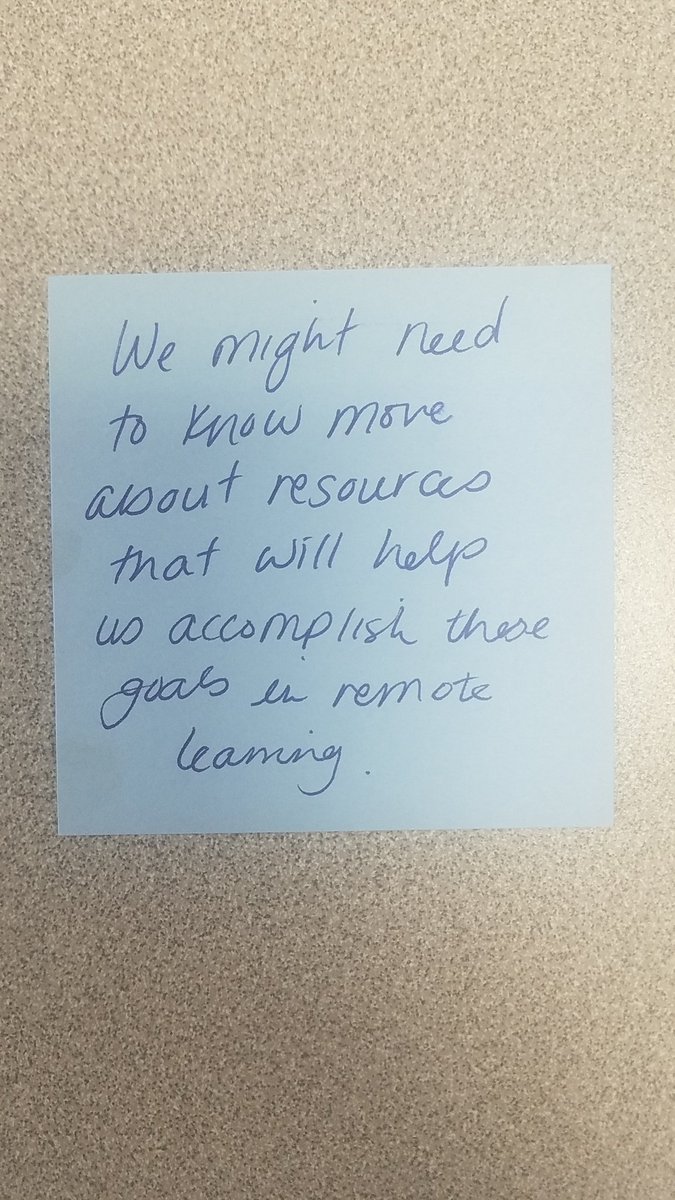 We might need
to know more
about resources
that will help
us accomplish these
goals in remote
learning.